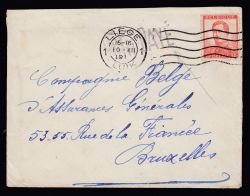 LIEGE
1 15-16 1
BELGIQUE
Compagnie Belge
d'Assurances Générales
53.55 Rue de la Fiancée
Bruxelles